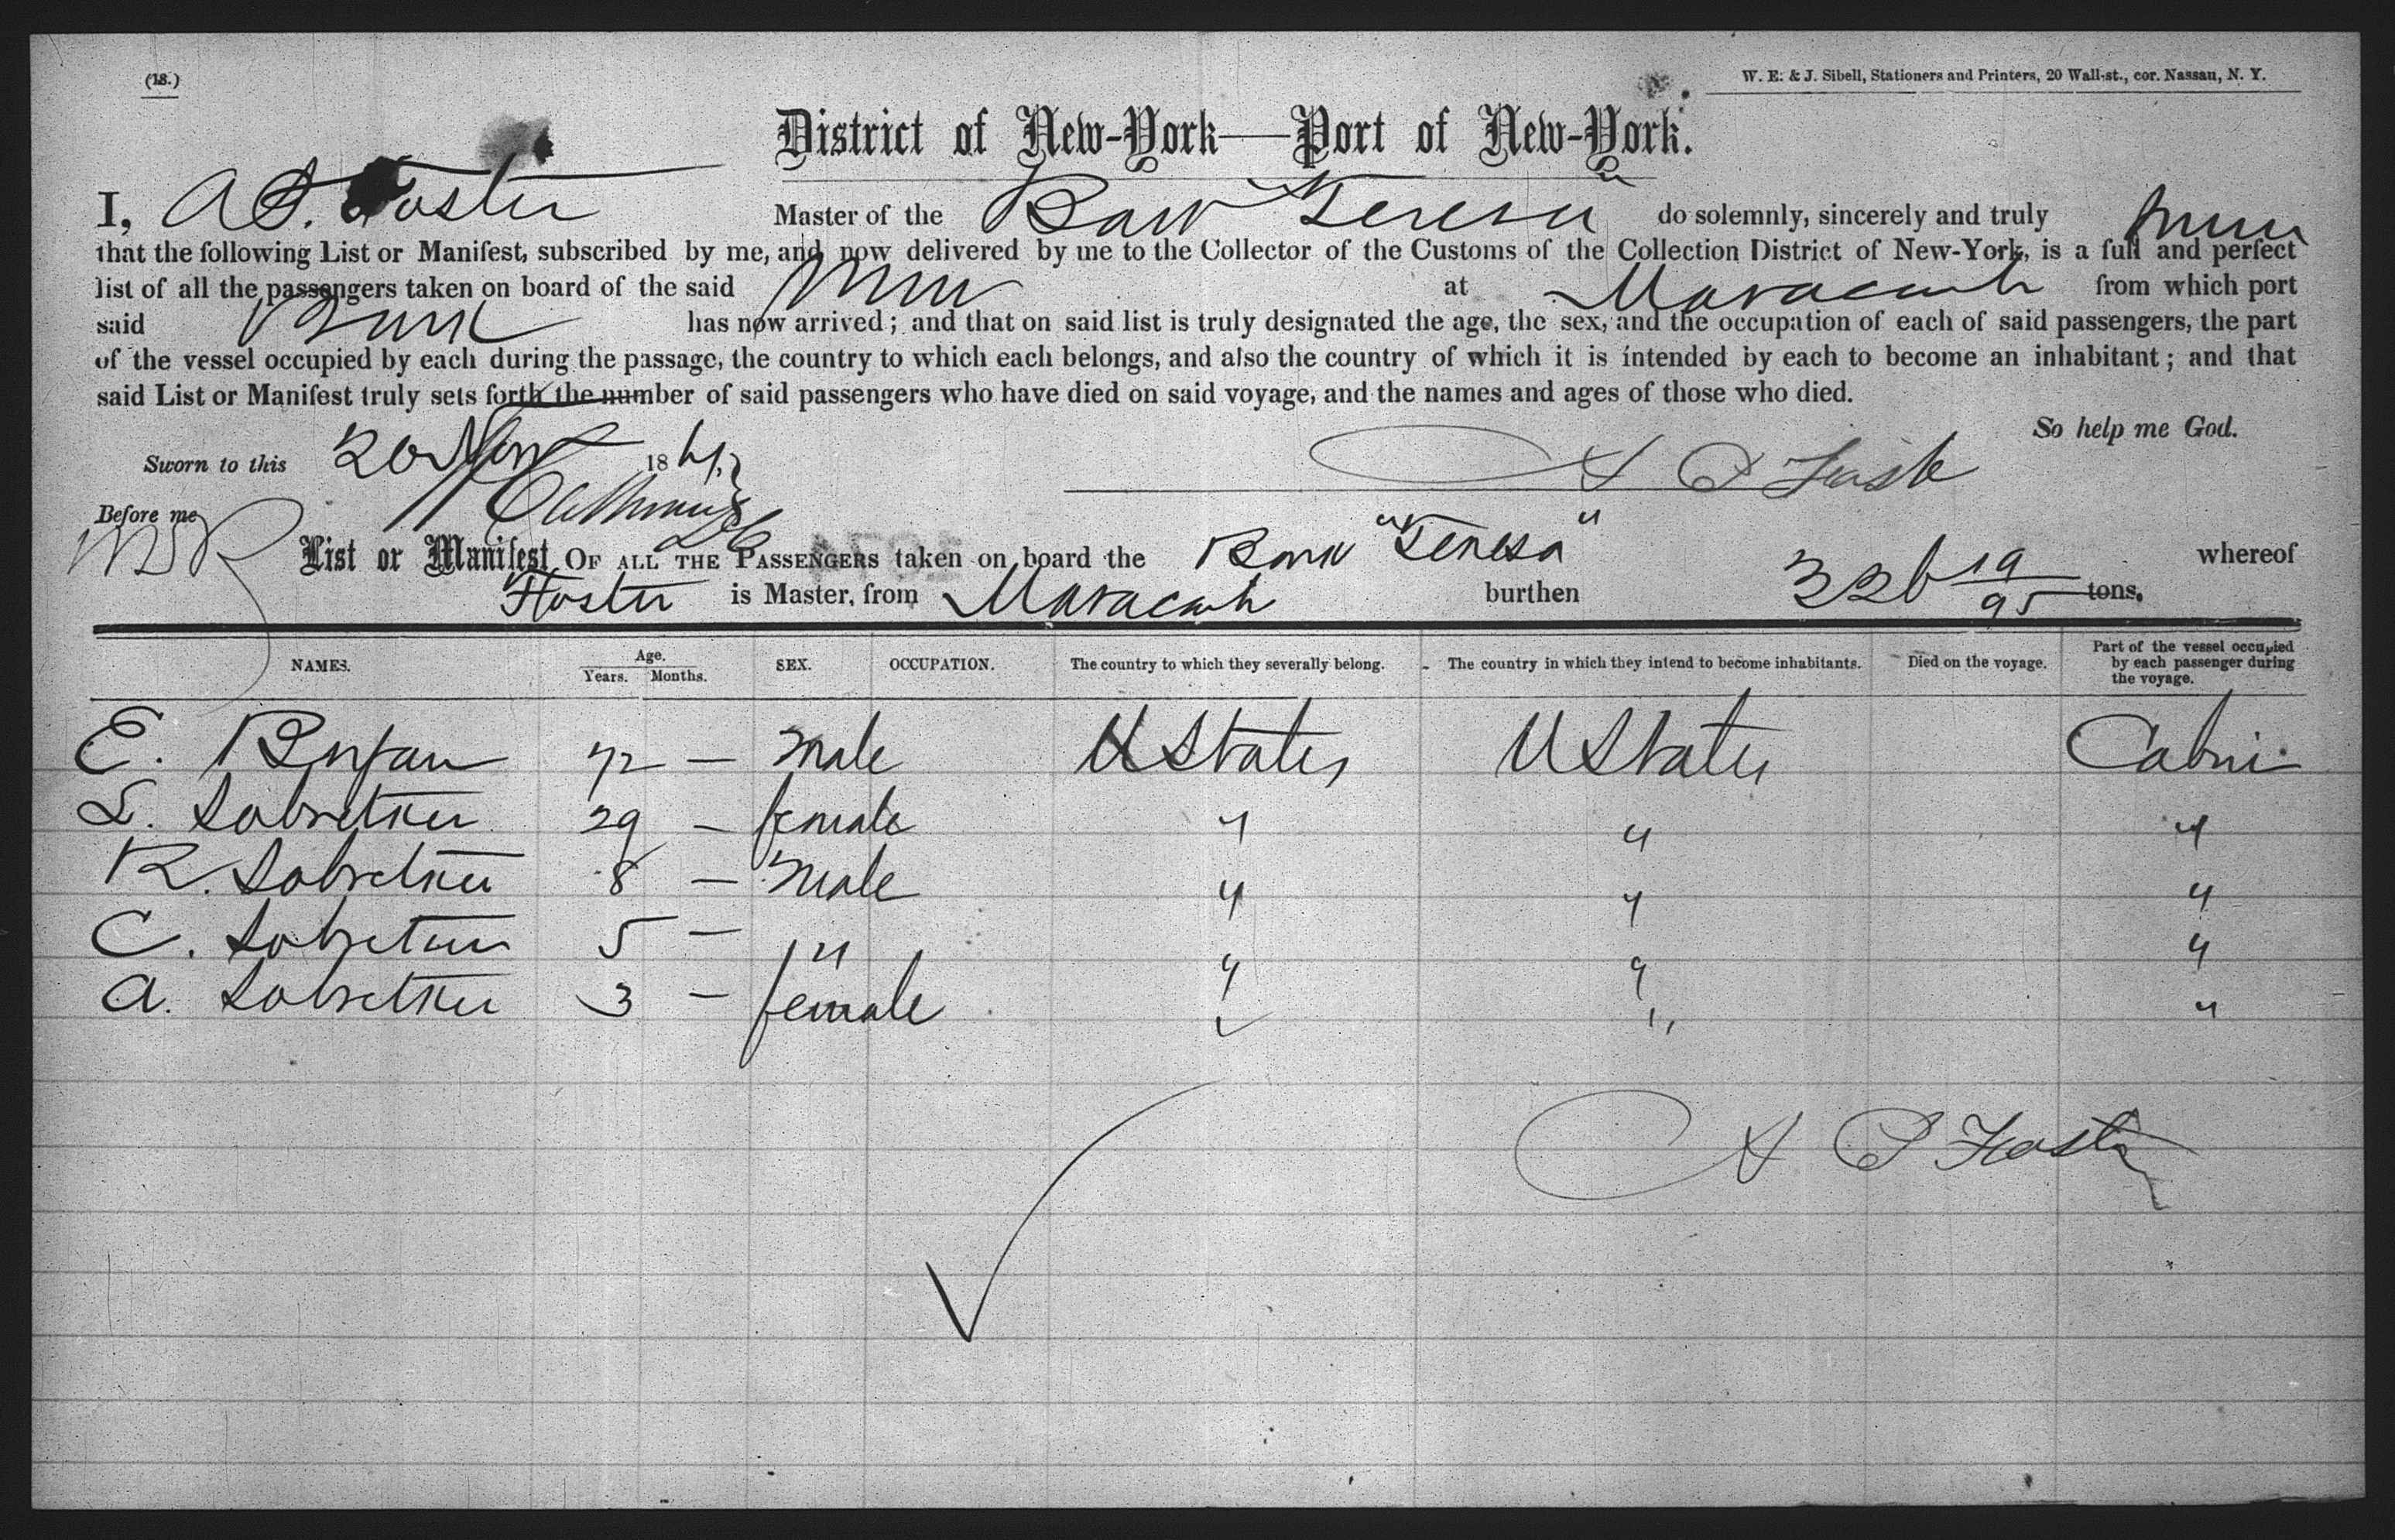 (18.)
W. E. & J. Sibell, Stationers and Printers, 20 Wall-st., cor. Nassau, N. Y.
District of New-York—Port of New-York.
I, A P. Foster Master of the Bark Teresa do solemnly, sincerely and truly swear
that the following List or Manifest, subscribed by me, and now delivered by me to the Collector of the Customs of the Collection District of New-York, is a full and perfect
list of all the passengers taken on board of the said at Maracaibo from which port
said Bark has now arrived; and that on said list is truly designated the age, the sex, and the occupation of each of said passengers, the part
of the vessel occupied by each during the passage, the country to which each belongs, and also the country of which it is intended by each to become an inhabitant; and that
said List or Manifest truly sets forth the number of said passengers who have died on said voyage, and the names and ages of those who died.
So help me God.
Sworn to this 20 Nov 186
A P Foster
Before me
List or Manifest OF ALL THE PASSENGERS taken on board the Bark "Teresa" whereof
Foster is Master, from Maracaibo burthen 326 19/95 tons.
NAMES. Age. Years. Months. SEX. OCCUPATION. The country to which they severally belong. The country in which they intend to become inhabitants. Died on the voyage. Part of the vessel occupied by each passenger during the voyage.
E. Bryan 42 — male U States U States Cabin
L. 29 — female " " "
R. 8 — male " " "
C. 5 — " " " "
A. 3 — female " " "
A P Foster